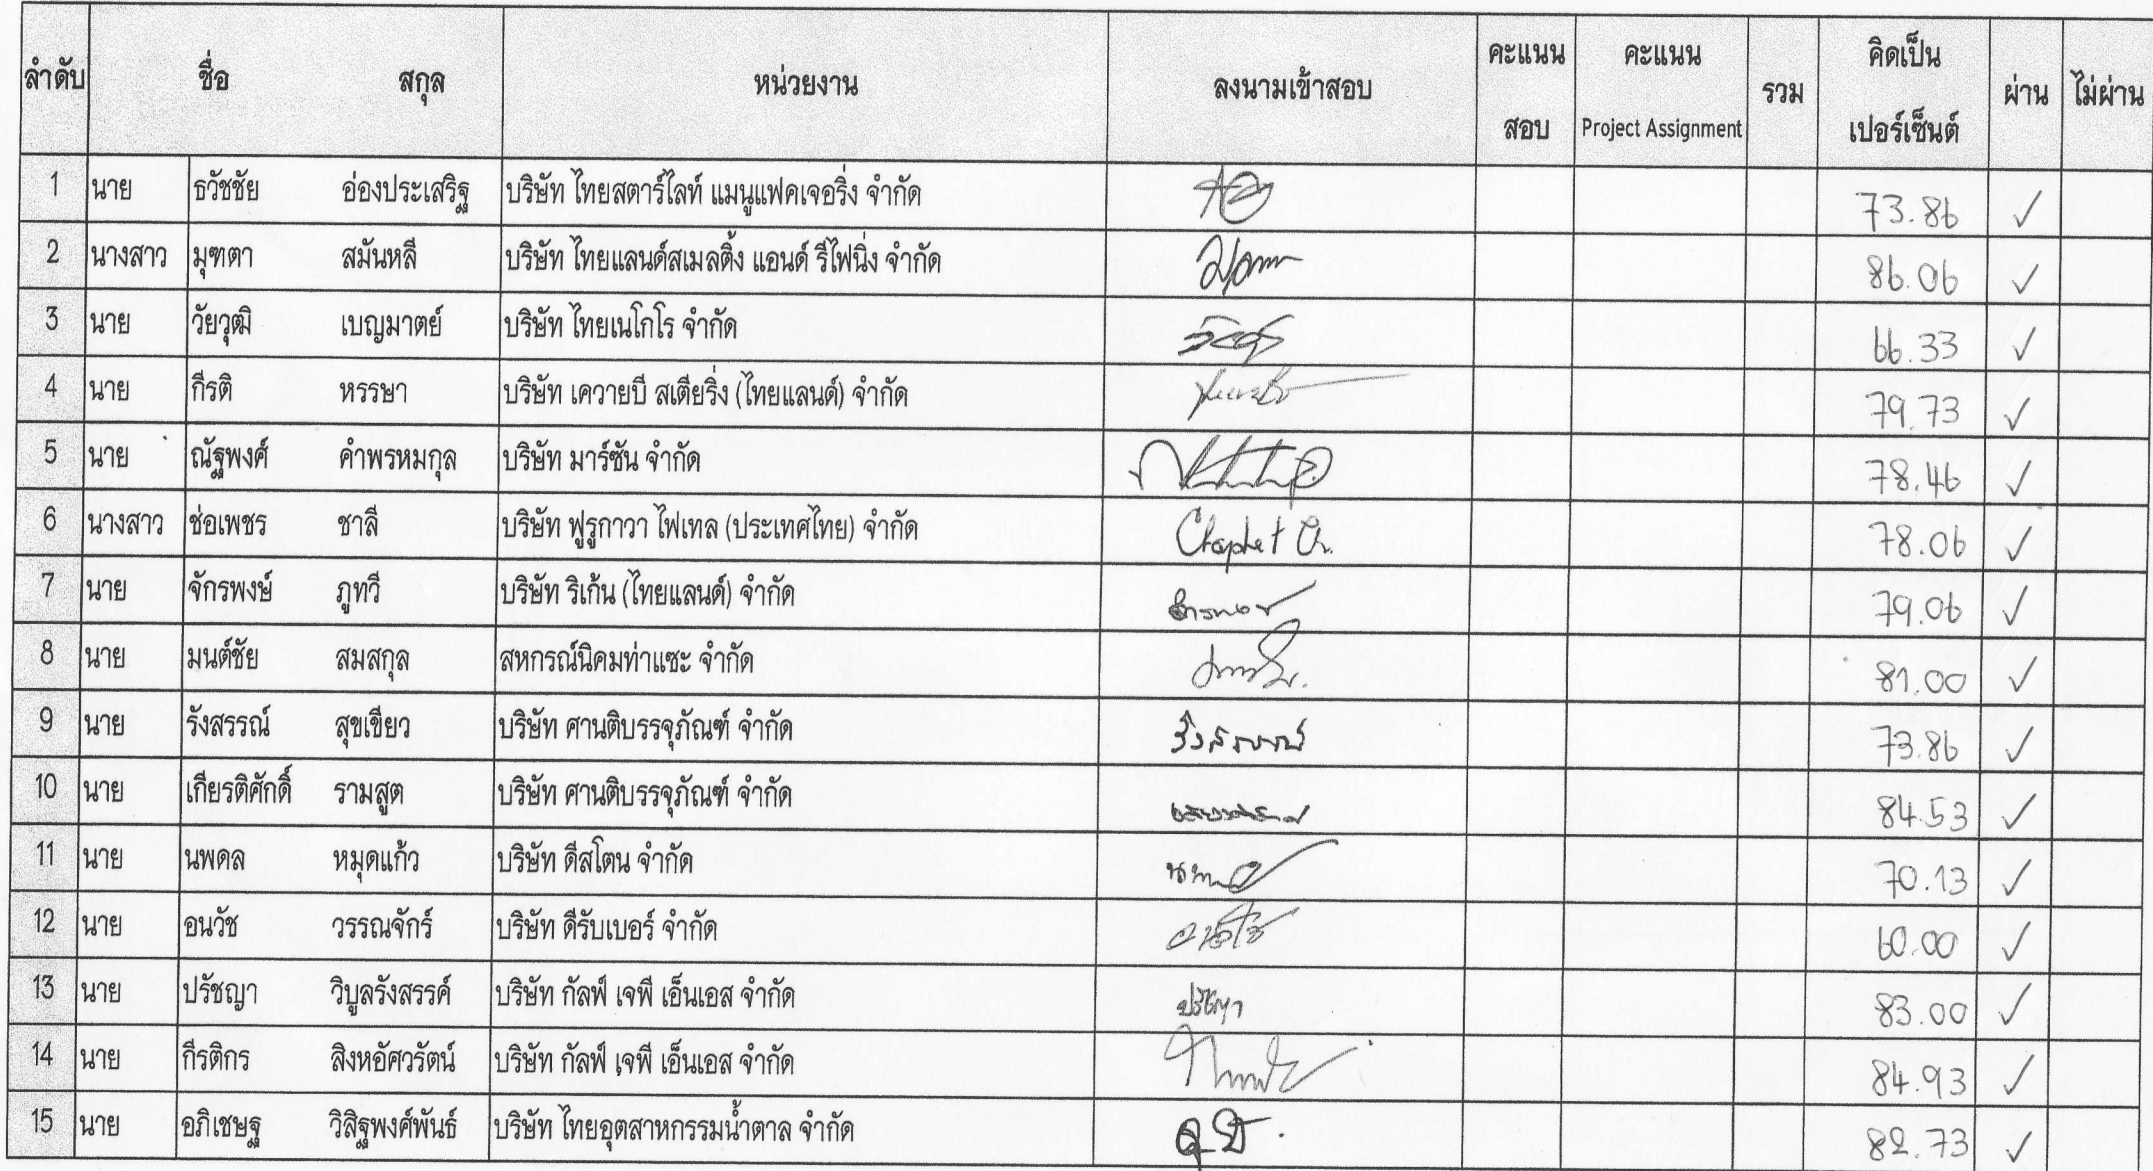 ลำดับ ชื่อ สกุล หน่วยงาน ลงนามเข้าสอบ คะแนน สอบ คะแนน Project Assignment รวม คิดเป็น เปอร์เซ็นต์ ผ่าน ไม่ผ่าน
1 นาย ธวัชชัย อ่องประเสริฐ บริษัท ไทยสตาร์ไลท์ แมนูแฟคเจอริ่ง จำกัด 73.86 ✓
2 นางสาว มุฑตา สมันหลี บริษัท ไทยแลนด์สเมลติ้ง แอนด์ รีไฟนิ่ง จำกัด 86.06 ✓
3 นาย วัยวุฒิ เบญมาตย์ บริษัท ไทยเนโกโร จำกัด 66.33 ✓
4 นาย กีรติ หรรษา บริษัท เควายบี สเตียริ่ง (ไทยแลนด์) จำกัด 79.73 ✓
5 นาย ณัฐพงศ์ คำพรหมกุล บริษัท มาร์ซัน จำกัด 78.46 ✓
6 นางสาว ช่อเพชร ชาลี บริษัท ฟูรูกาวา ไฟเทล (ประเทศไทย) จำกัด 78.06 ✓
7 นาย จักรพงษ์ ภูทวี บริษัท ริเก้น (ไทยแลนด์) จำกัด 79.06 ✓
8 นาย มนต์ชัย สมสกุล สหกรณ์นิคมท่าแซะ จำกัด 81.00 ✓
9 นาย รังสรรณ์ สุขเขียว บริษัท ศานติบรรจุภัณฑ์ จำกัด รังสรรณ์ 73.86 ✓
10 นาย เกียรติศักดิ์ รามสูต บริษัท ศานติบรรจุภัณฑ์ จำกัด 84.53 ✓
11 นาย นพดล หมุดแก้ว บริษัท ดีสโตน จำกัด 70.13 ✓
12 นาย อนวัช วรรณจักร์ บริษัท ดีรับเบอร์ จำกัด 60.00 ✓
13 นาย ปรัชญา วิบูลรังสรรค์ บริษัท กัลฟ์ เจพี เอ็นเอส จำกัด ปรัชญา 83.00 ✓
14 นาย กีรติกร สิงหอัศวรัตน์ บริษัท กัลฟ์ เจพี เอ็นเอส จำกัด 84.93 ✓
15 นาย อภิเชษฐ วิสิฐพงศ์พันธ์ บริษัท ไทยอุตสาหกรรมน้ำตาล จำกัด 82.73 ✓